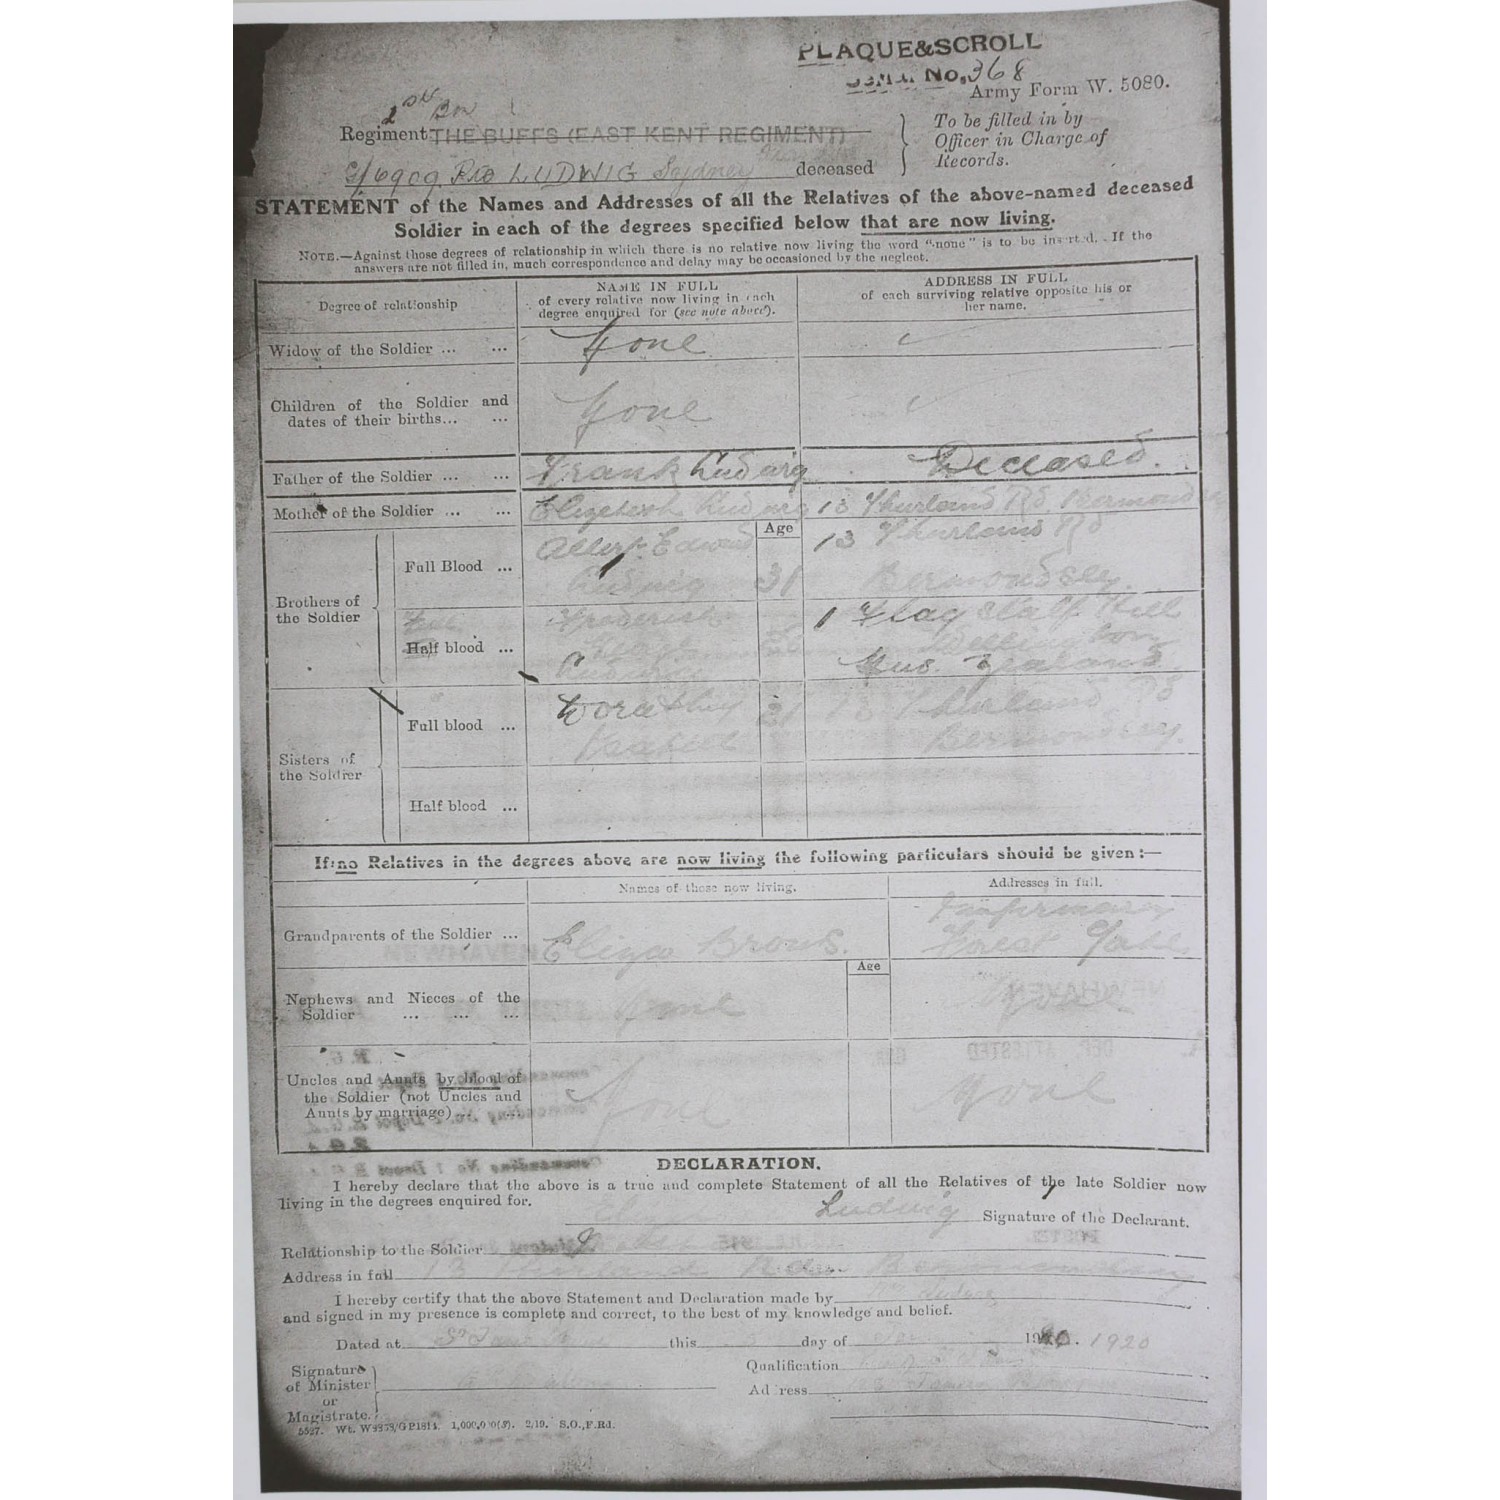 PLAQUE&SCROLL
No. 368
Army Form W. 5080.
Regiment THE BUFFS (EAST KENT REGIMENT)
To be filled in by
Officer in Charge of
Records.
G/6909 Pte LUDWIG Sydney deceased
STATEMENT of the Names and Addresses of all the Relatives of the above-named deceased
Soldier in each of the degrees specified below that are now living.
NOTE.—Against those degrees of relationship in which there is no relative now living the word "none" is to be inserted. If the
answers are not filled in, much correspondence and delay may be occasioned by the neglect.
Degree of relationship
NAME IN FULL
of every relative now living in each
degree enquired for (see note above).
ADDRESS IN FULL
of each surviving relative opposite his or
her name.
Widow of the Soldier ... ...
None
Children of the Soldier and
dates of their births... ...
None
Father of the Soldier ... ...
Frank Ludwig
Deceased.
Mother of the Soldier ... ...
Elizabeth Ludwig
13 Thurland Rd Bermondsey
Age
Brothers of
the Soldier
Full Blood ...
Albert Edward
Ludwig
31
13 Thurland Rd
Bermondsey.
Half blood ...
Frederick
Ludwig
1 Flag Staff Hill
New Zealand.
Sisters of
the Soldier
Full blood ...
Dorathy
31
13 Thurland Rd
Bermondsey.
Half blood ...
If no Relatives in the degrees above are now living the following particulars should be given:—
Names of those now living.
Addresses in full.
Grandparents of the Soldier ...
Eliza Brown.
Infirmary
Forest Gate.
Age
Nephews and Nieces of the
Soldier ... ... ...
None
None
Uncles and Aunts by blood of
the Soldier (not Uncles and
Aunts by marriage) ... ...
None
None
DECLARATION.
I hereby declare that the above is a true and complete Statement of all the Relatives of the late Soldier now
living in the degrees enquired for.
Ludwig Signature of the Declarant.
Relationship to the Soldier
Address in full 13 Thurland Road Bermondsey
I hereby certify that the above Statement and Declaration made by Mrs Ludwig
and signed in my presence is complete and correct, to the best of my knowledge and belief.
Dated at this day of 1920
Signature
of Minister
or
Magistrate.
Qualification
Address
5527. Wt. W9373/GP1814. 1,000,000(S). 2/19. S.O.,F.Rd.